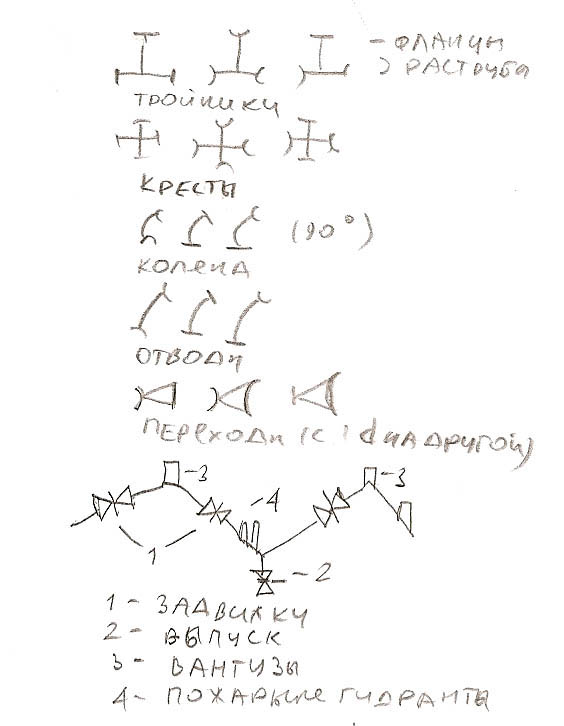 - ФЛАНЦЫ
) РАСТРУБА
ТРОЙНИКИ
КРЕСТЫ
(90°)
КОЛЕНА
ОТВОДИ
ПЕРЕХОДИ (С 1 d НА ДРУГОЙ)
-3
-3
-4
1
-2
1 - ЗАДВИЖКИ
2 - ВЫПУСК
3 - ВАНТУЗЫ
4 - ПОЖАРЫЕ ГИДРАНТЫ